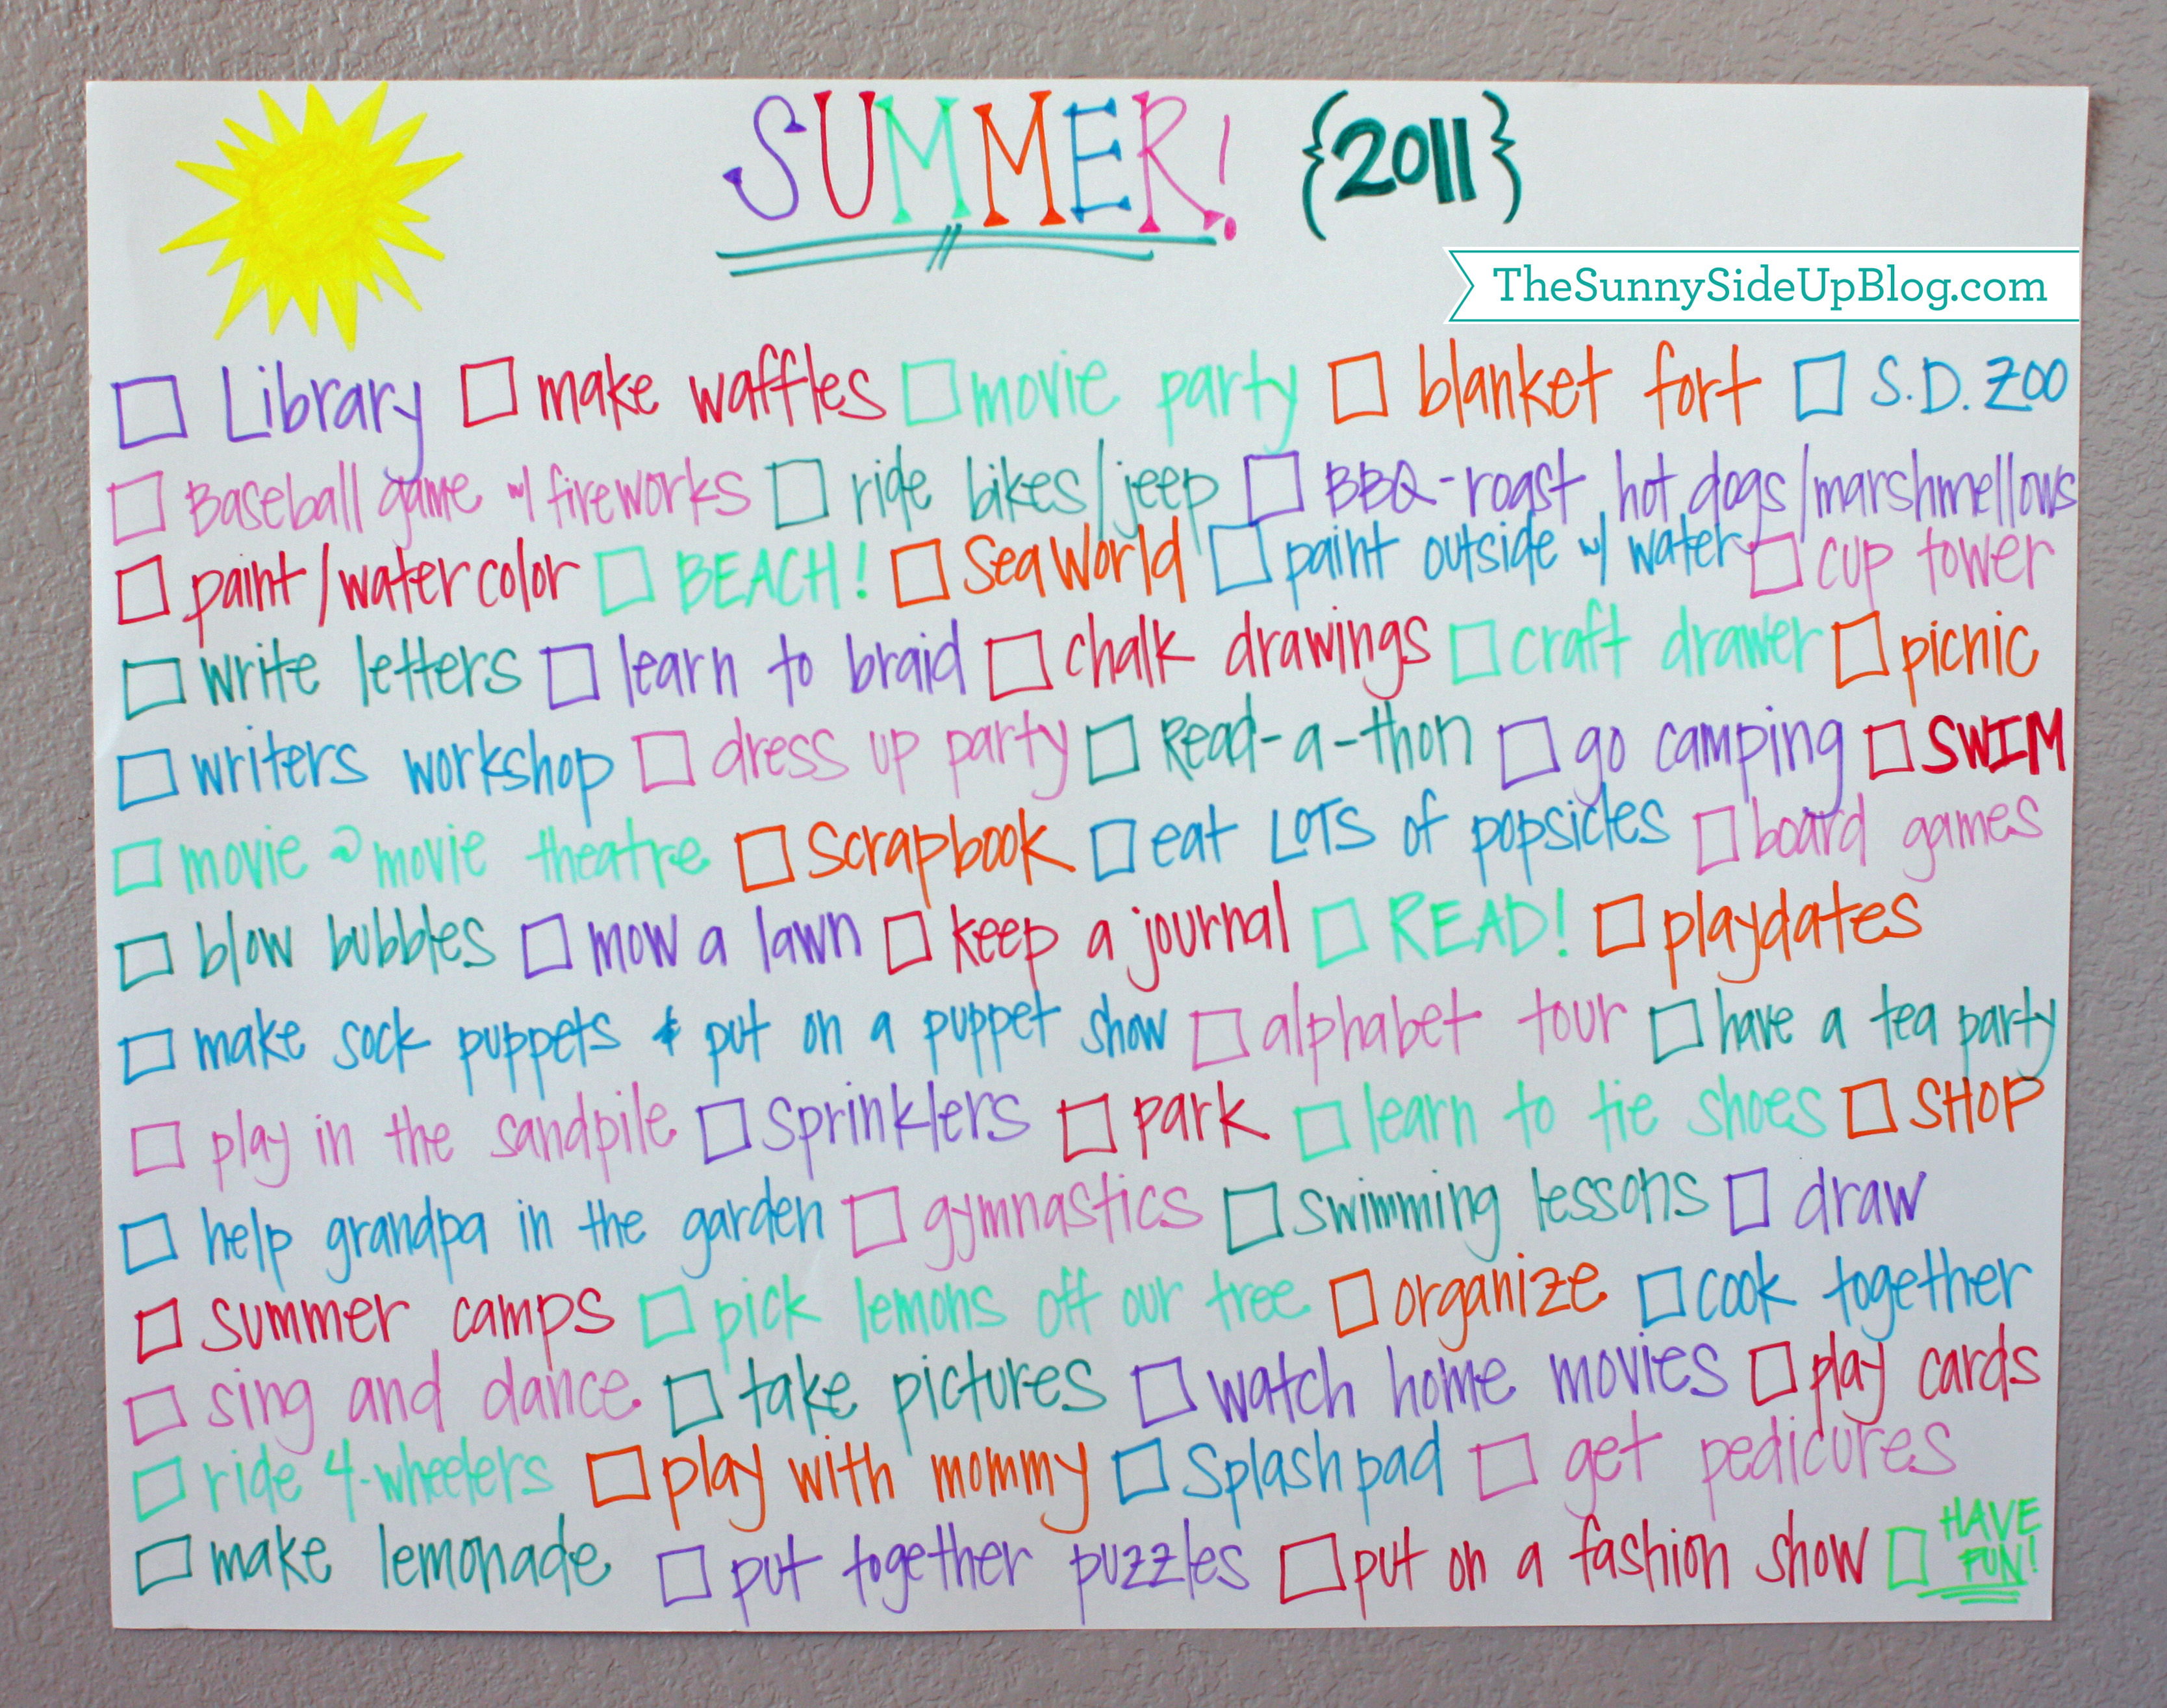 SUMMER! {2011}
TheSunnySideUpBlog.com
☐ Library ☐ make waffles ☐ movie party ☐ blanket fort ☐ S.D. ZOO
☐ Baseball game w/ fireworks ☐ ride bikes/jeep ☐ BBQ-roast hot dogs/marshmellows
☐ paint/watercolor ☐ BEACH! ☐ Sea World ☐ paint outside w/ water ☐ cup tower
☐ write letters ☐ learn to braid ☐ chalk drawings ☐ craft drawer ☐ picnic
☐ writers workshop ☐ dress up party ☐ Read-a-thon ☐ go camping ☐ SWIM
☐ movie @ movie theatre ☐ Scrapbook ☐ eat LOTS of popsicles ☐ board games
☐ blow bubbles ☐ mow a lawn ☐ keep a journal ☐ READ! ☐ playdates
☐ make sock puppets & put on a puppet show ☐ alphabet tour ☐ have a tea party
☐ play in the sandpile ☐ Sprinklers ☐ park ☐ learn to tie shoes ☐ SHOP
☐ help grandpa in the garden ☐ gymnastics ☐ swimming lessons ☐ draw
☐ summer camps ☐ pick lemons off our tree ☐ organize ☐ cook together
☐ sing and dance ☐ take pictures ☐ watch home movies ☐ play cards
☐ ride 4-wheelers ☐ play with mommy ☐ Splash pad ☐ get pedicures
☐ make lemonade ☐ put together puzzles ☐ put on a fashion show ☐ HAVE FUN!